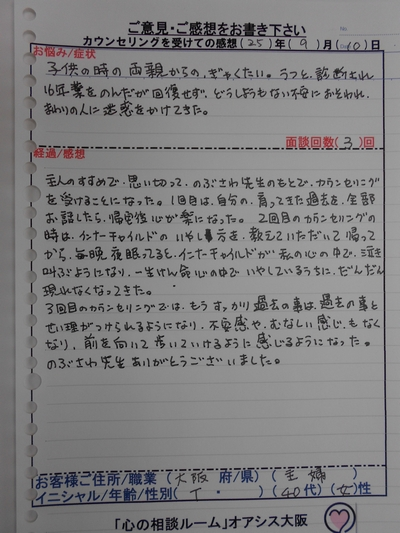 ご意見・ご感想をお書き下さい
カウンセリングを受けての感想(25)年(9)月(10)日
お悩み/症状
子供の時の両親からの、ぎゃくたい。うつと、診断され
16年薬をのんだが回復せず、どうしようもない不安におそわれ、
まわりの人に迷惑をかけてきた。
面談回数(3)回
経過/感想
主人のすすめで、思い切って、のぶさわ先生のもとで、カウンセリング
を受けることになった。1回目は、自分の、育ってきた過去を、全部
お話したら、帰宅後心が楽になった。2回目のカウンセリングの
時は、インナーチャイルドのいやし方を、教えていただいて帰って
から、毎晩、夜眠ってると、インナーチャイルドが私の心の中で、泣き
叫ぶようになり、一生けん命心の中でいやしているうちに、だんだん
現れなくなってきた。
3回目のカウンセリングでは、もうすっかり過去の事は、過去の事と
せい理がつけられるようになり、不安感や、むなしい感じ、もなく
なり、前を向いて歩いていけるように感じるようになった。
のぶさわ先生ありがとうございました。
お客様ご住所/職業(大阪 府/県)(主婦)
イニシャル/年齢/性別(T・ )(40代)(女)性
「心の相談ルーム」オアシス大阪